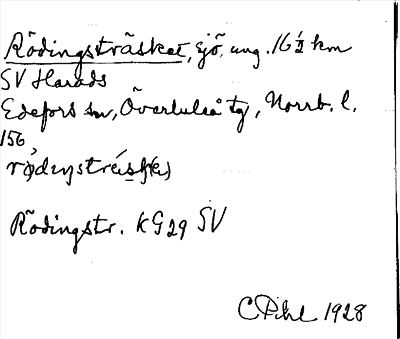 Rödingsträsket, sjö, ung. 16 ½ km
SV Harads
Edefors sn, Överluleå tg, Norrb. l.
156
Rödingstr. KG29 SV
C Pihl 1928